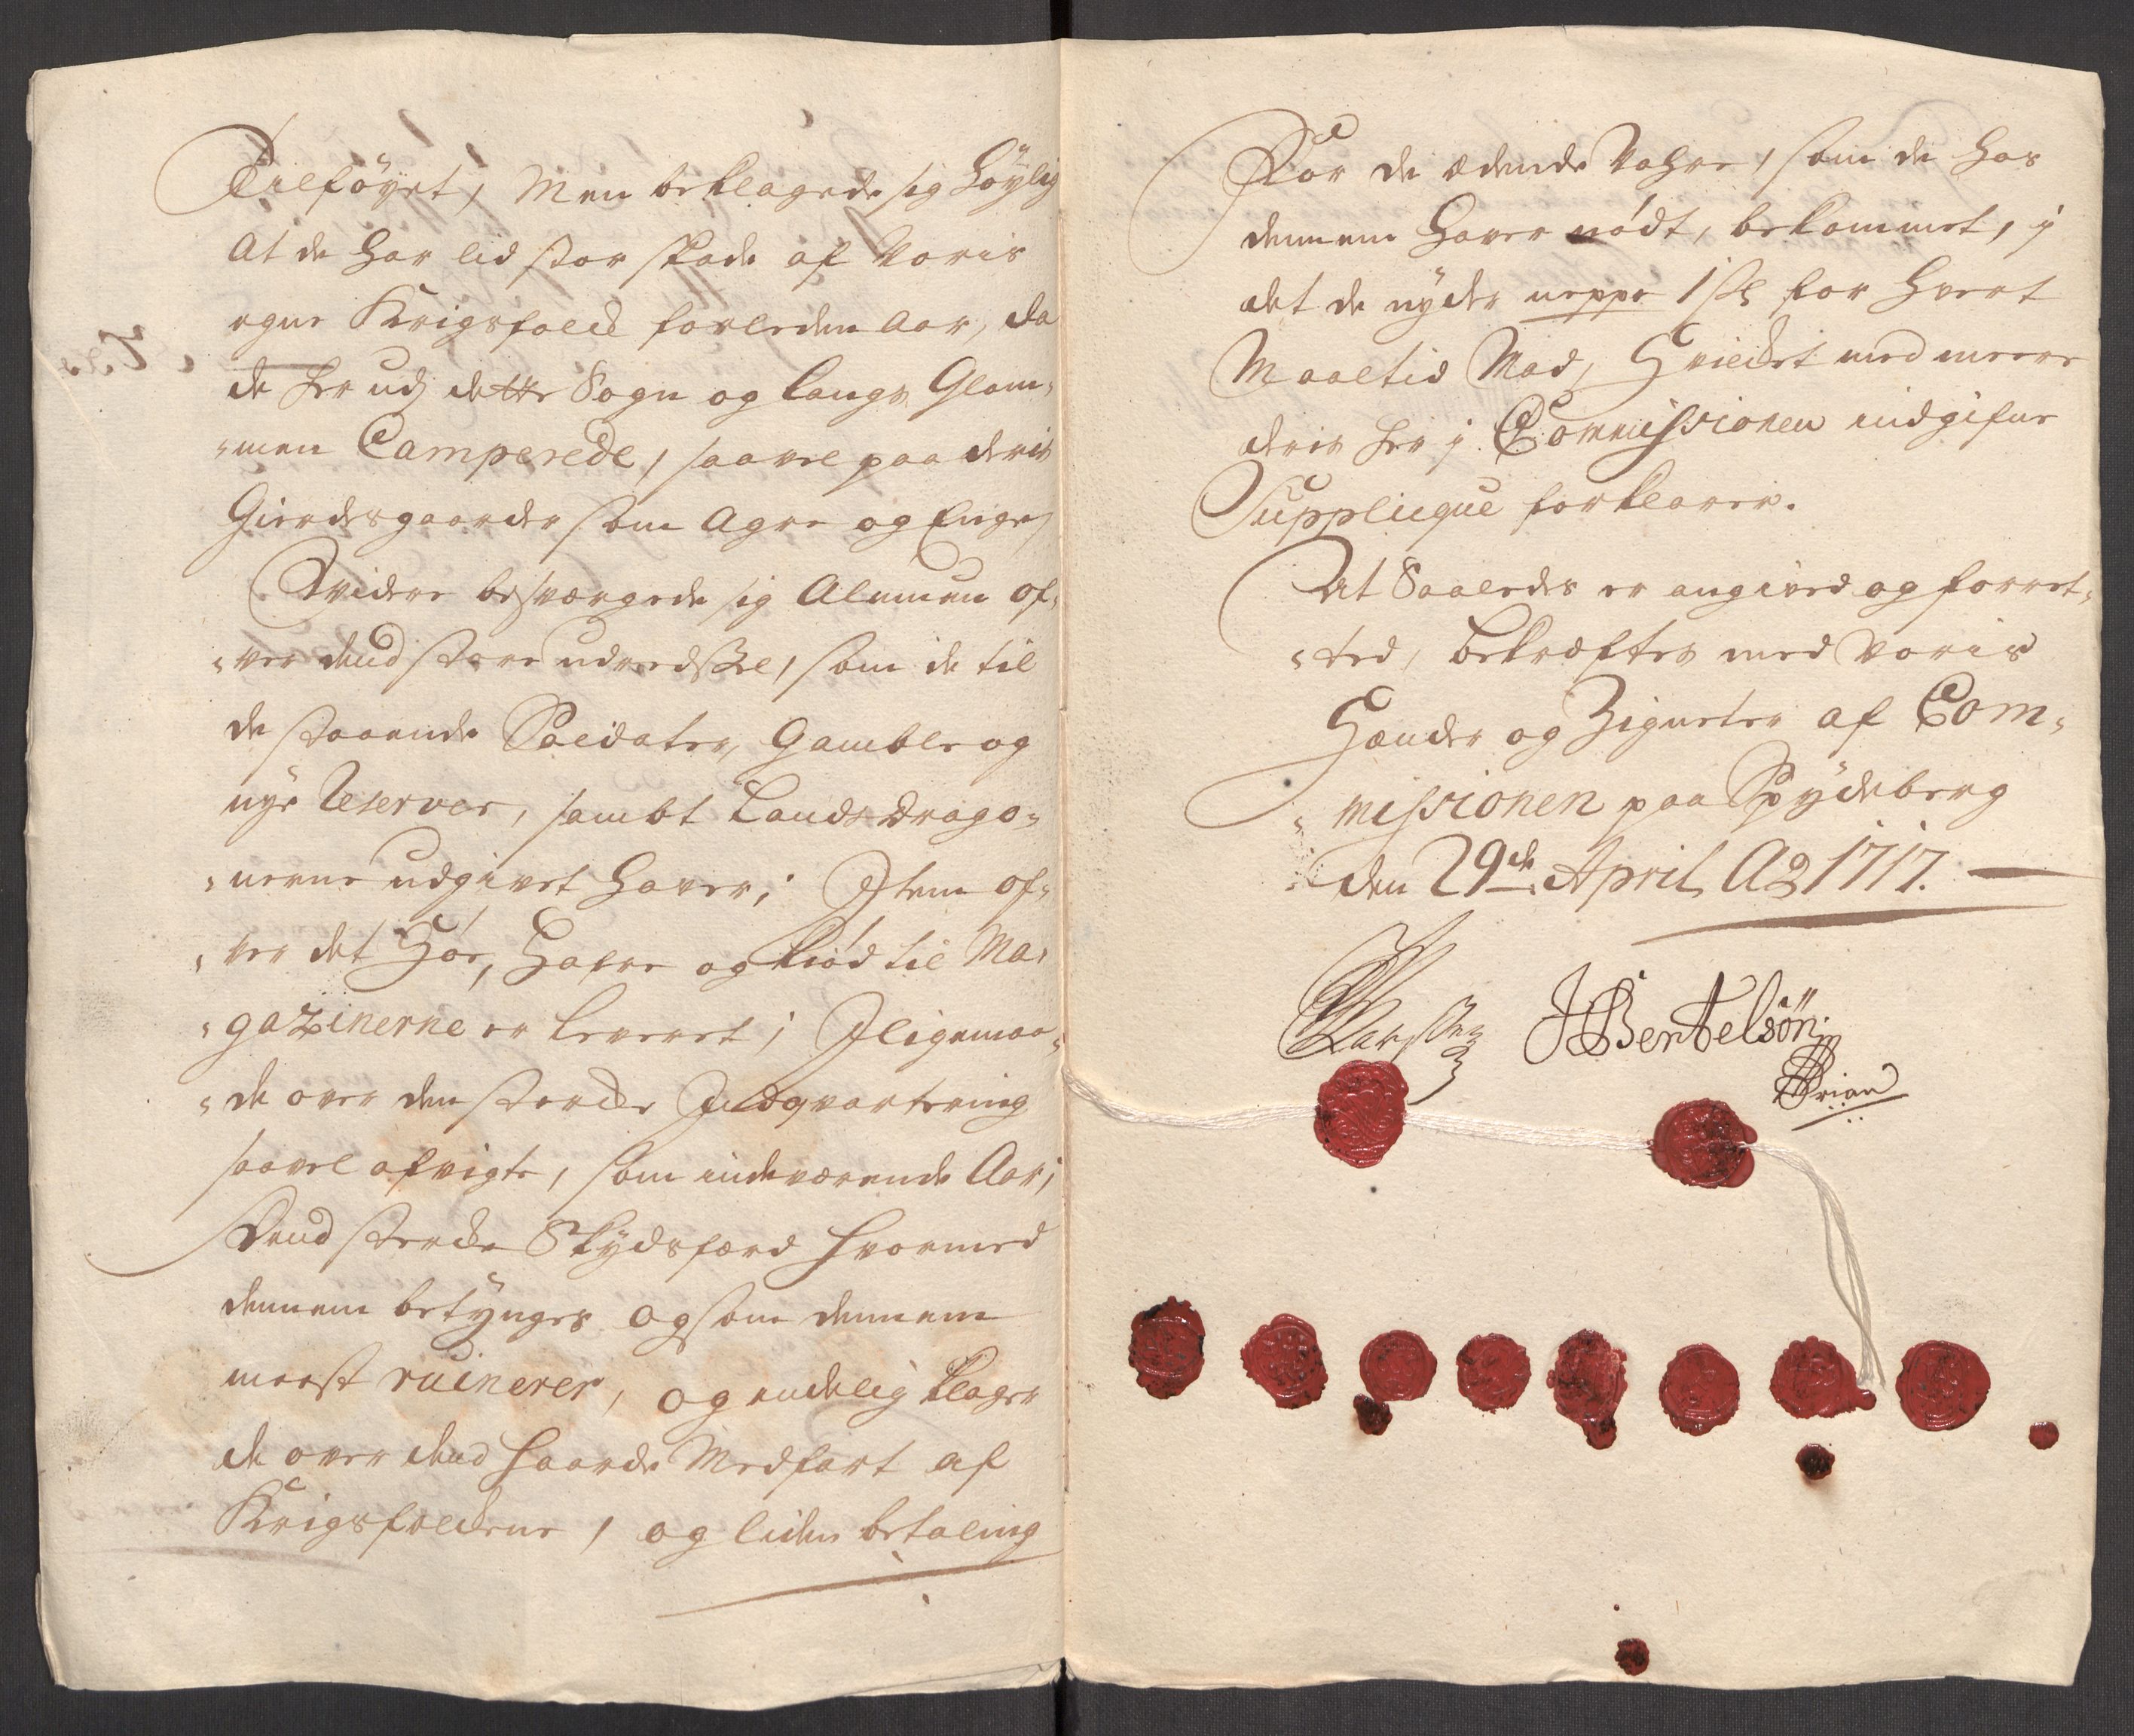 Tilföyet, Men beklagede sig Höylig
at de har lid stor skade af Voris
egne Krigsfolck forleden Aar, da
de her udj dette Sogn og langs Glom-
-men Camperede, saavel paa deris
Gierdesgaarder som Agre og Enge,
Widere besværgede sig Almuen of-
-ver dend store udredssel, som de til
de staaende Soldater, Gamble og
nye Reserver, sambt Lands Drago-
-nerne udgivet haver; Item of-
-ver det Höe, Hafre og Kiöd til Ma-
-gazinerne er leveret; Iligemaa-
-de over den stercke Indqvartering
saavel afvigte, som indeværende Aar;
Dend stercke Skydsferd hvormed
dennem betynges og som dennem
meest ruinerer, og endelig klager
de over dend haarde Medfart af
Krigsfolckene, og liden betaling
For de ædende Vahre, som de hos
dennem haver nödt, bekommet, i
det de nyder neppe 1 sk for hvert
Maaltid Mad, Hvilcket med meere
deris her i Commissionen indgifne
Supplicque forklarer.
At Saaledes er angived og forret-
-ted, bekræftes med Voris
Hænder og Zigneter af Com-
-missionen paa Spydeberg
den 29de April Ao 1717.
JBentelsön